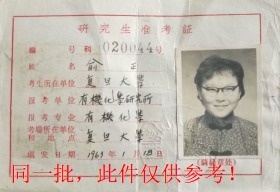 研究生准考证
编号 科 020044号
姓名 俞正
考生所在单位 复旦大学
报考单位 有机化学研究所
报考专业 有机化学
考场所在单位和地点 复旦大学
颁发日期 1963年1月18日
同一批,此件仅供参考!